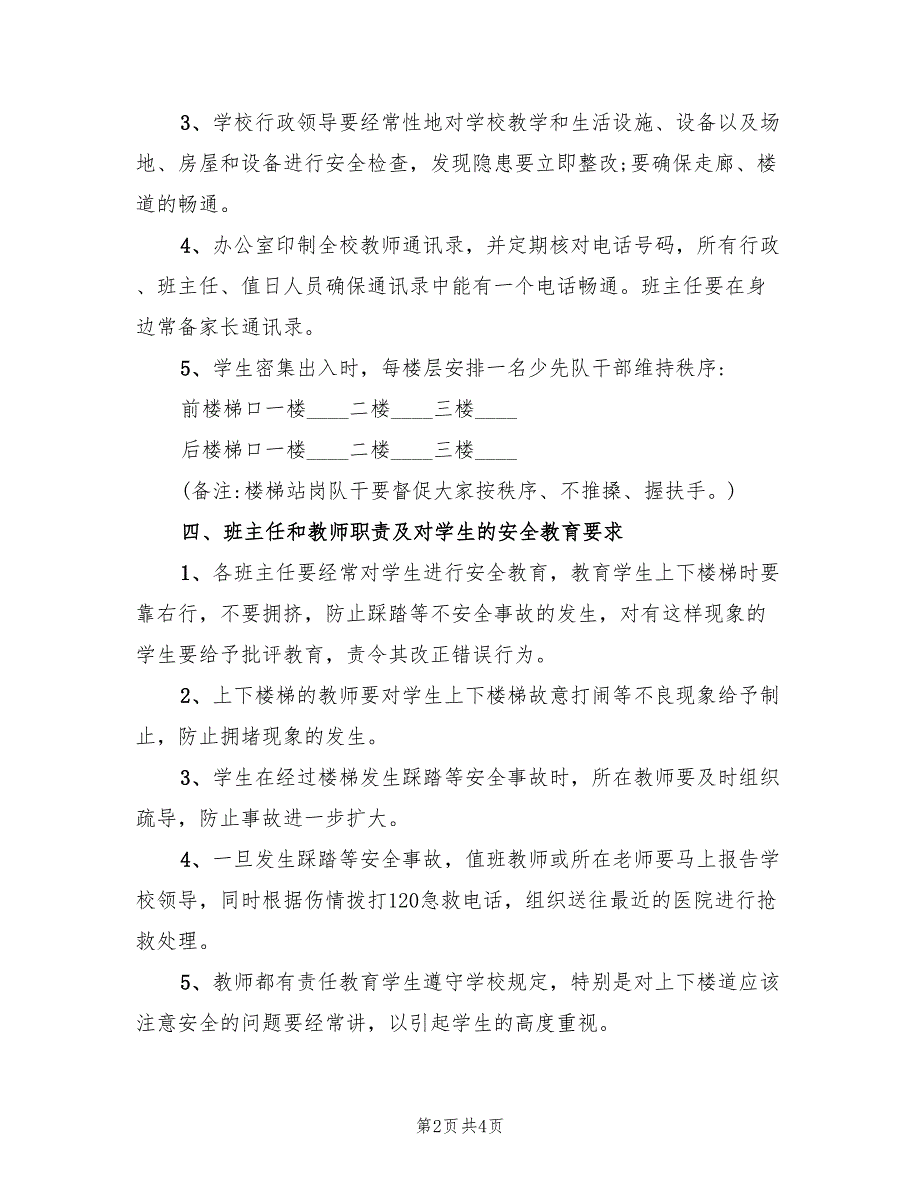 3、学校行政领导要经常性地对学校教学和生活设施、设备以及场
地、房屋和设备进行安全检查，发现隐患要立即整改;要确保走廊、楼
道的畅通。
4、办公室印制全校教师通讯录，并定期核对电话号码，所有行政
、班主任、值日人员确保通讯录中能有一个电话畅通。班主任要在身
边常备家长通讯录。
5、学生密集出入时，每楼层安排一名少先队干部维持秩序:
前楼梯口一楼____二楼____三楼____
后楼梯口一楼____二楼____三楼____
(备注:楼梯站岗队干要督促大家按秩序、不推搡、握扶手。)
四、班主任和教师职责及对学生的安全教育要求
1、各班主任要经常对学生进行安全教育，教育学生上下楼梯时要
靠右行，不要拥挤，防止踩踏等不安全事故的发生，对有这样现象的
学生要给予批评教育，责令其改正错误行为。
2、上下楼梯的教师要对学生上下楼梯故意打闹等不良现象给予制
止，防止拥堵现象的发生。
3、学生在经过楼梯发生踩踏等安全事故时，所在教师要及时组织
疏导，防止事故进一步扩大。
4、一旦发生踩踏等安全事故，值班教师或所在老师要马上报告学
校领导，同时根据伤情拨打120急救电话，组织送往最近的医院进行抢
救处理。
5、教师都有责任教育学生遵守学校规定，特别是对上下楼道应该
注意安全的问题要经常讲，以引起学生的高度重视。
第2页共4页